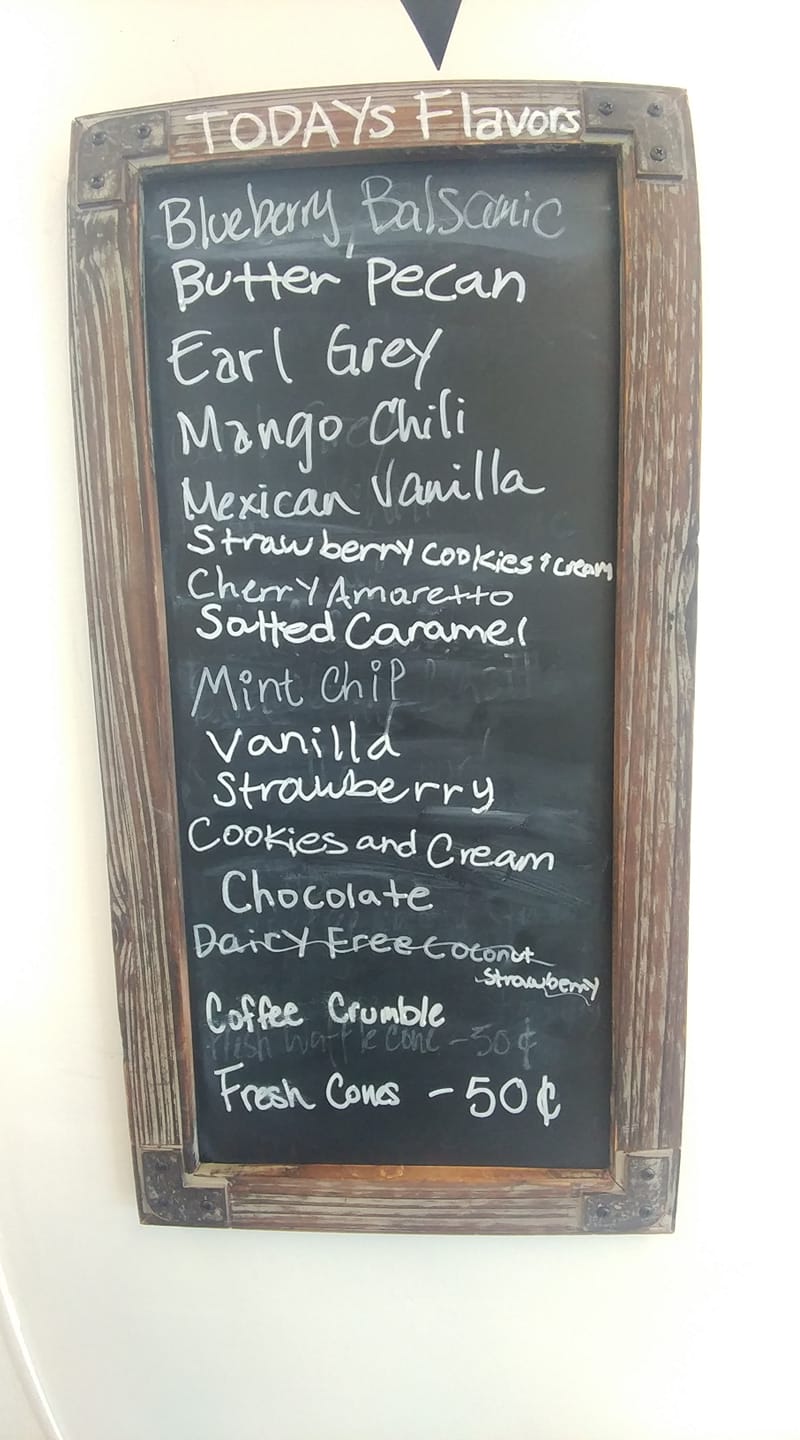 TODAYs Flavors
Blueberry, Balsamic
Butter Pecan
Earl Grey
Mango Chili
Mexican Vanilla
Strawberry Cookies & cream
Cherry Amaretto
Salted Caramel
Mint Chip
Vanilla
Strawberry
Cookies and Cream
Chocolate
Dairy Free Coconut
Strawberry
Coffee Crumble
Fresh Waffle Cone - 50¢
Fresh Cones - 50¢